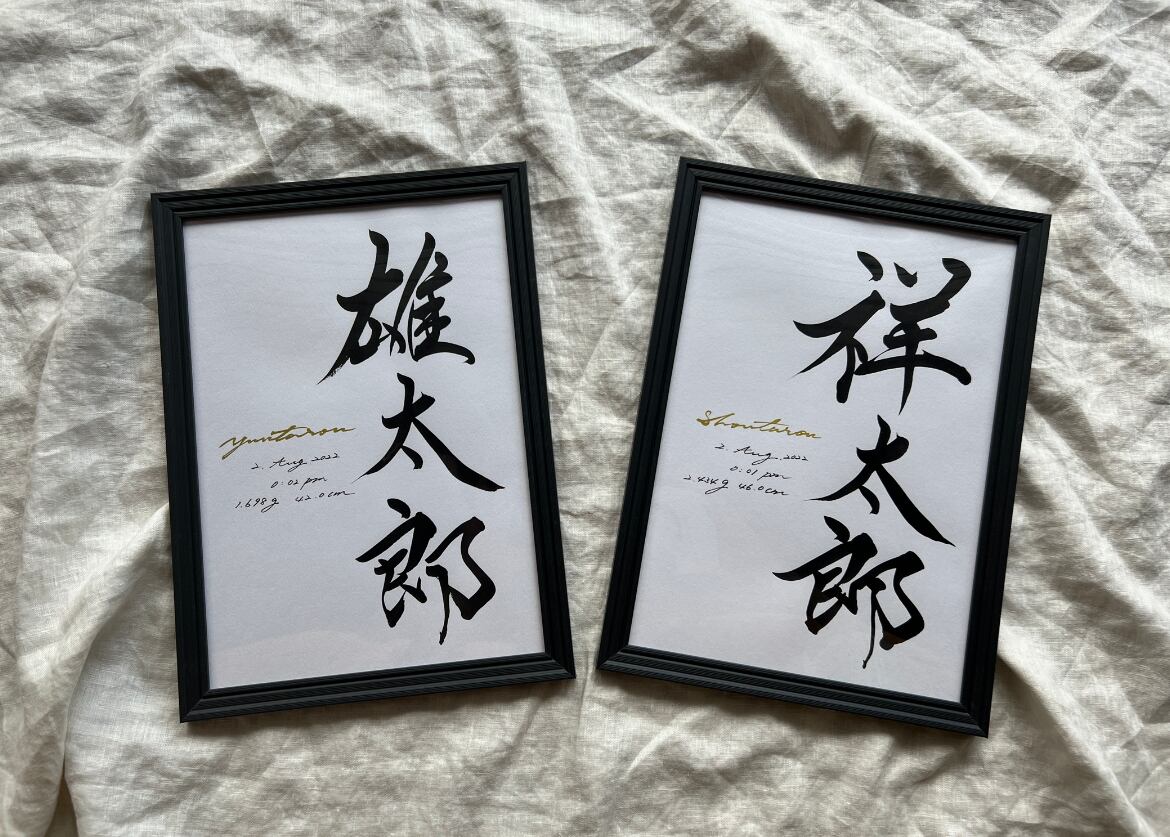 雄太郎
Yuutarou
2. Aug. 2022
0:02 pm
1.698g 42.0cm
祥太郎
Shoutarou
2. Aug. 2022
0:01 pm
2.434g 46.0cm